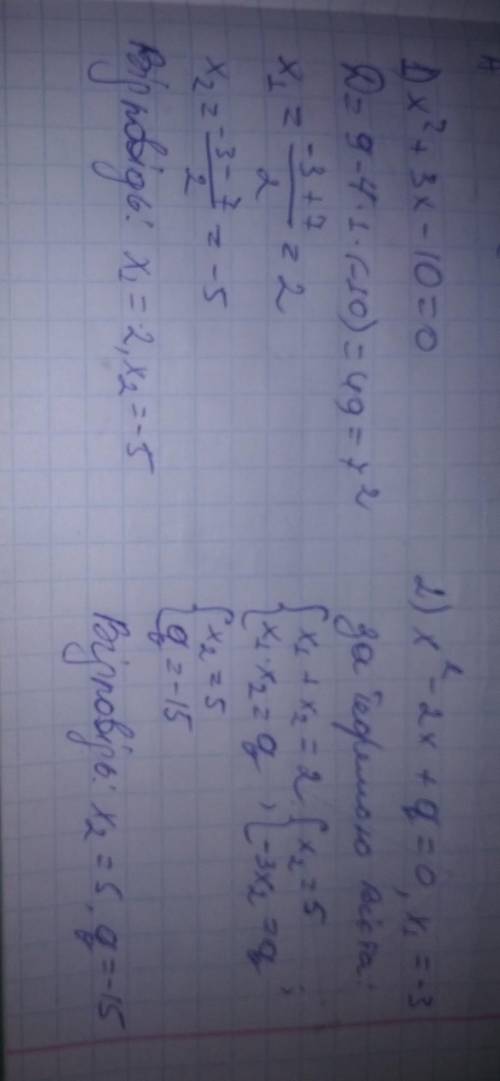 1) x² + 3x - 10 = 0
D = 9 - 4 · 1 · (-10) = 49 = 7²
x₁ = (-3 + 7)/2 = 2
x₂ = (-3 - 7)/2 = -5
Відповідь: x₁ = 2, x₂ = -5
2) x² - 2x + q = 0, x₁ = -3
За теоремою Вієта:
{x₁ + x₂ = 2 {x₂ = 5
{x₁ · x₂ = q , {-3x₂ = q ;
{x₂ = 5
{q = -15
Відповідь: x₂ = 5, q = -15